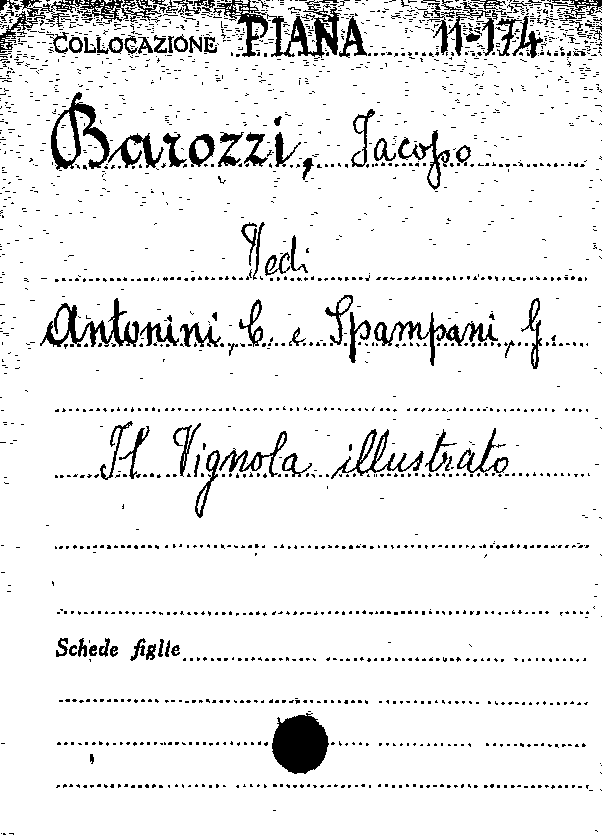 COLLOCAZIONE PIANA 11-174
Barozzi, Jacopo
Vedi
Antonini, C. e Spampani, G.
Il Vignola illustrato
Schede figlie